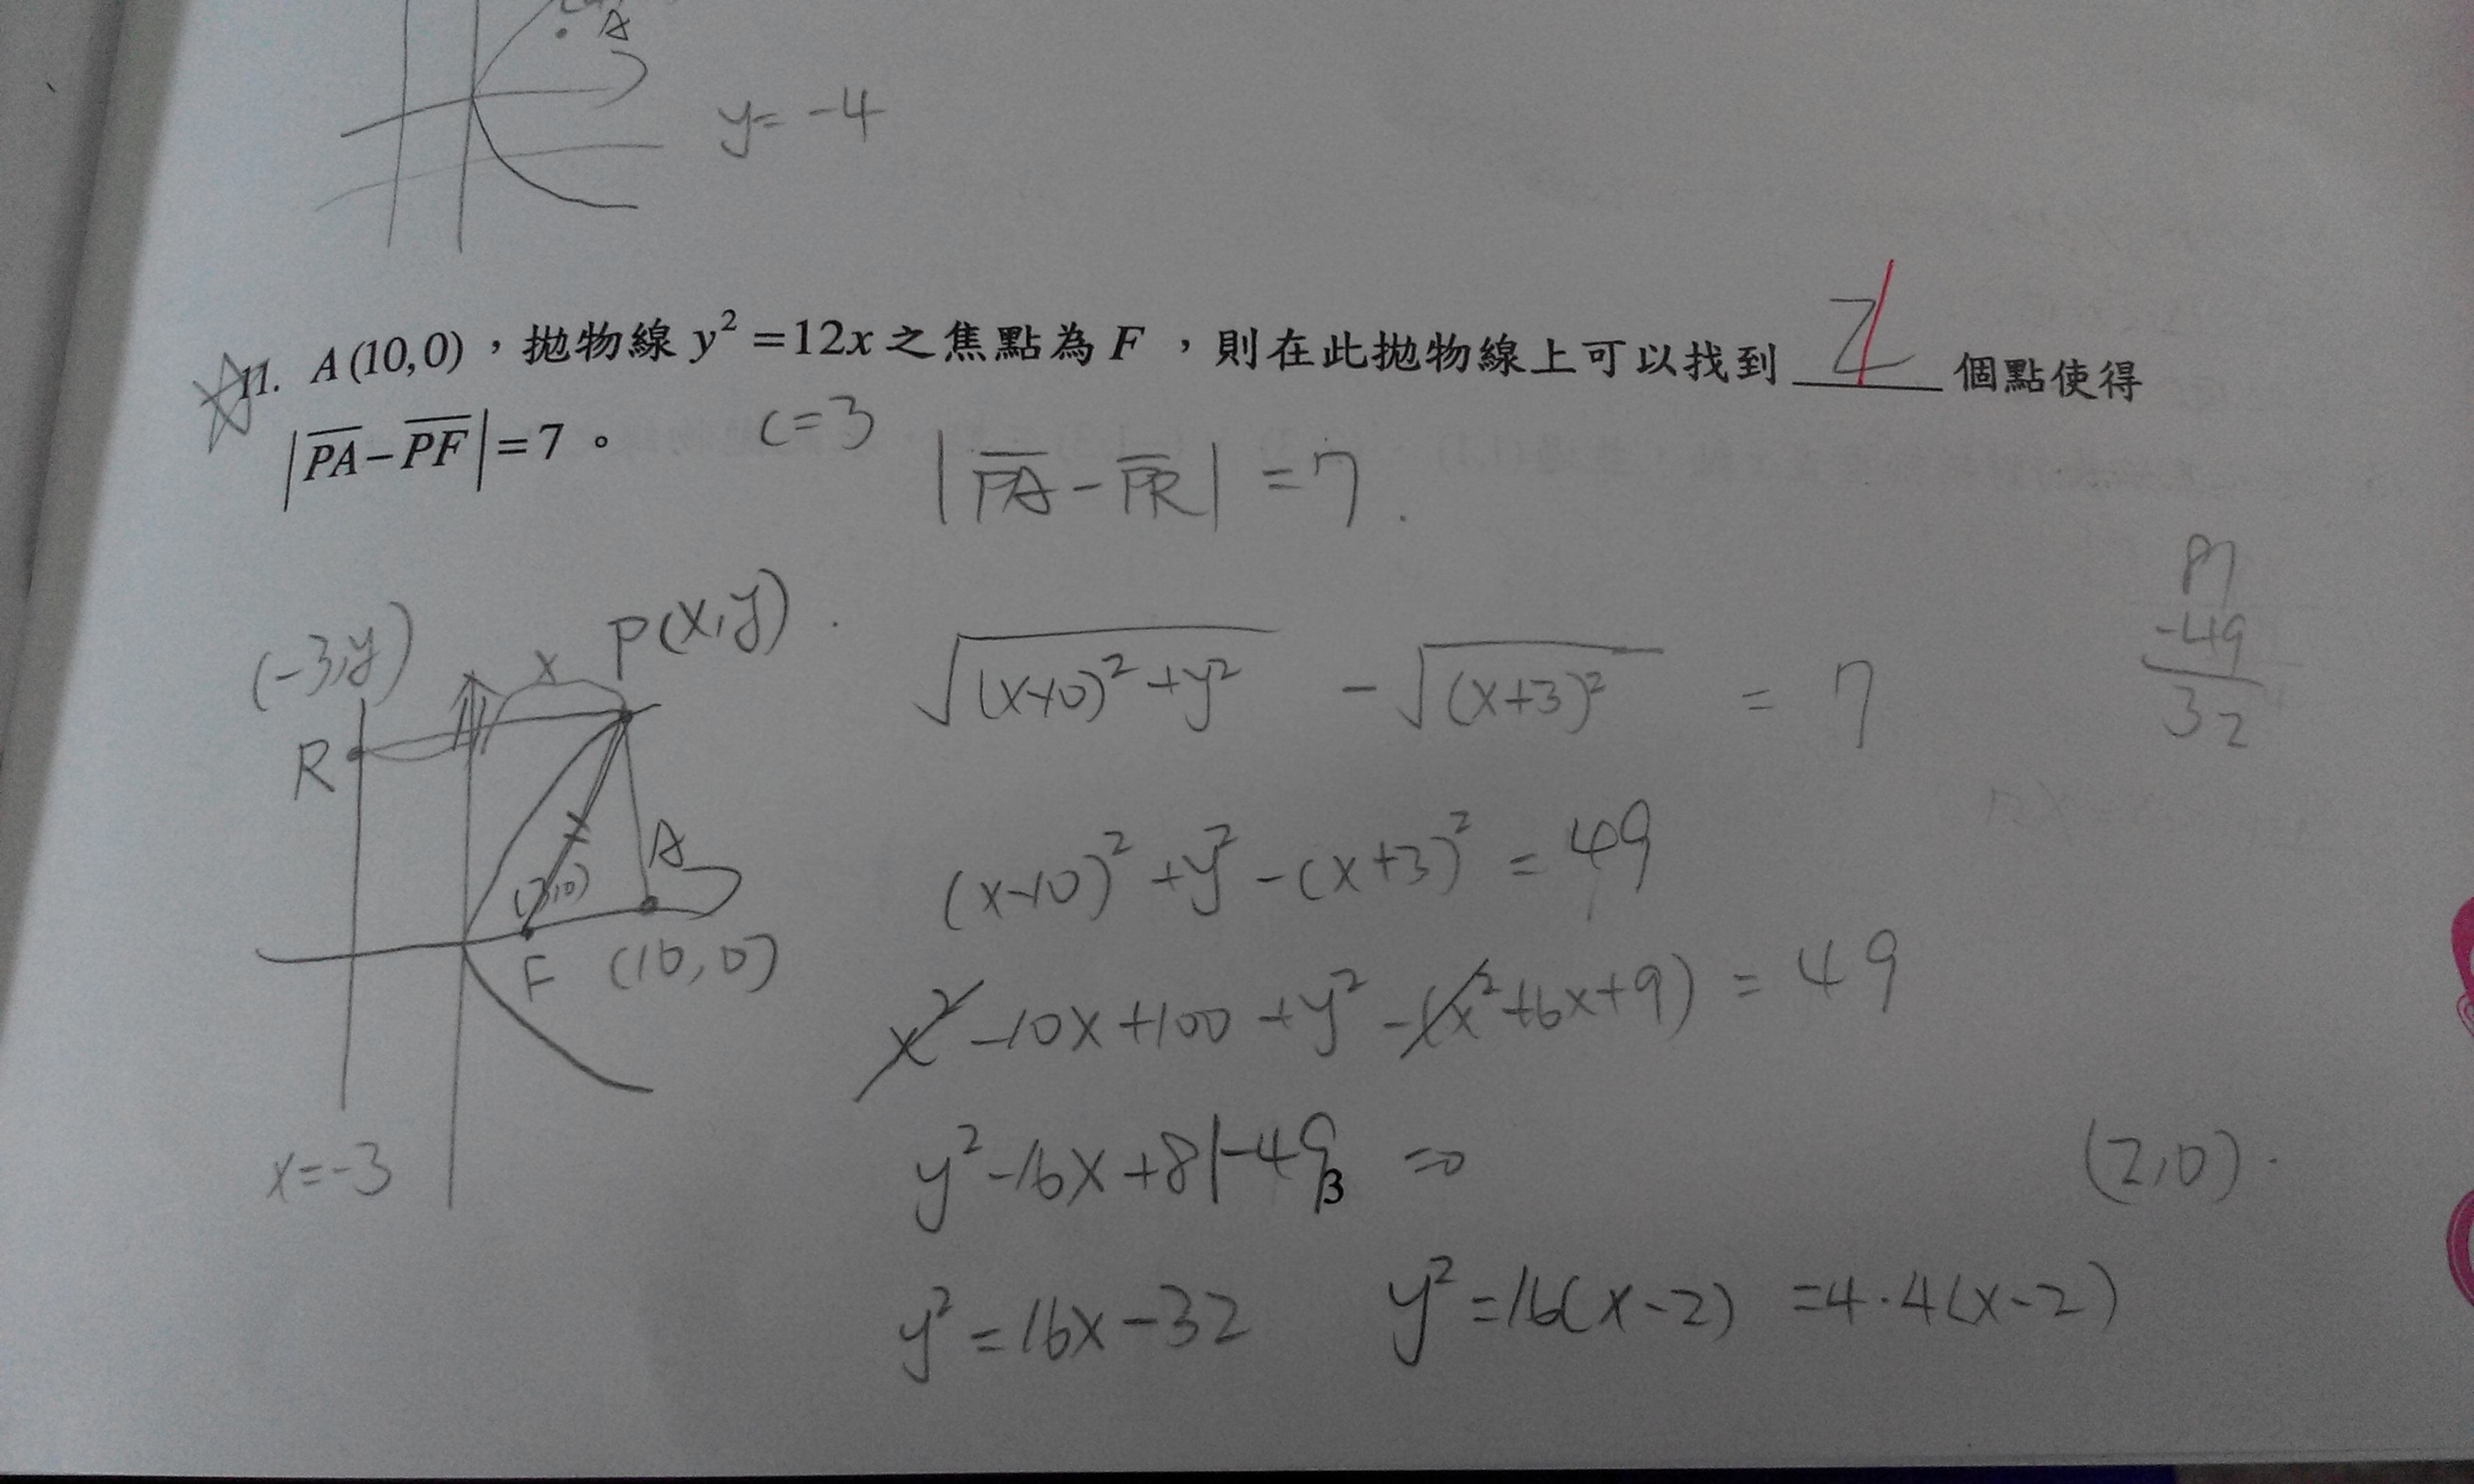 A
y=-4
11. A(10,0),拋物線 y²=12x 之焦點為 F ,則在此拋物線上可以找到 2 個點使得
|PA-PF|=7。
c=3
|PA-PR|=7.
(-3,y)
x
P(x,y).
R
A
(3,0)
F (10,0)
x=-3
√(x-10)²+y² - √(x+3)² = 7
(x-10)²+y²-(x+3)²=49
x²-10x+100+y²-(x²+6x+9)=49
y²-16x+81-49=0
y²=16x-32 y²=16(x-2) =4·4(x-2)
81
-49
32
(2,0).